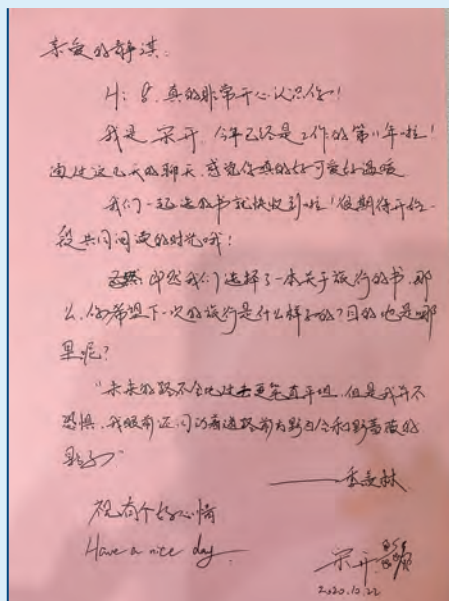 亲爱的静淇：
Hi！真的非常开心认识你！
我是宋开，今年已经是工作的第11年啦！
通过这几天的聊天，感觉你真的好可爱好温暖
我们一起选的书就快收到啦！很期待开始一
段共同阅读的时光哦！
既然我们选择了一本关于旅行的书，那
么，你希望下一次的旅行是什么样子的？目的地是哪
里呢？
"未来的路不会比过去更笔直平坦，但是我并不
恐惧，我眼前还闪动着道路前方野百合和野蔷薇的
影子"
——季羡林
祝有个好心情
Have a nice day.
宋开
2020.10.22